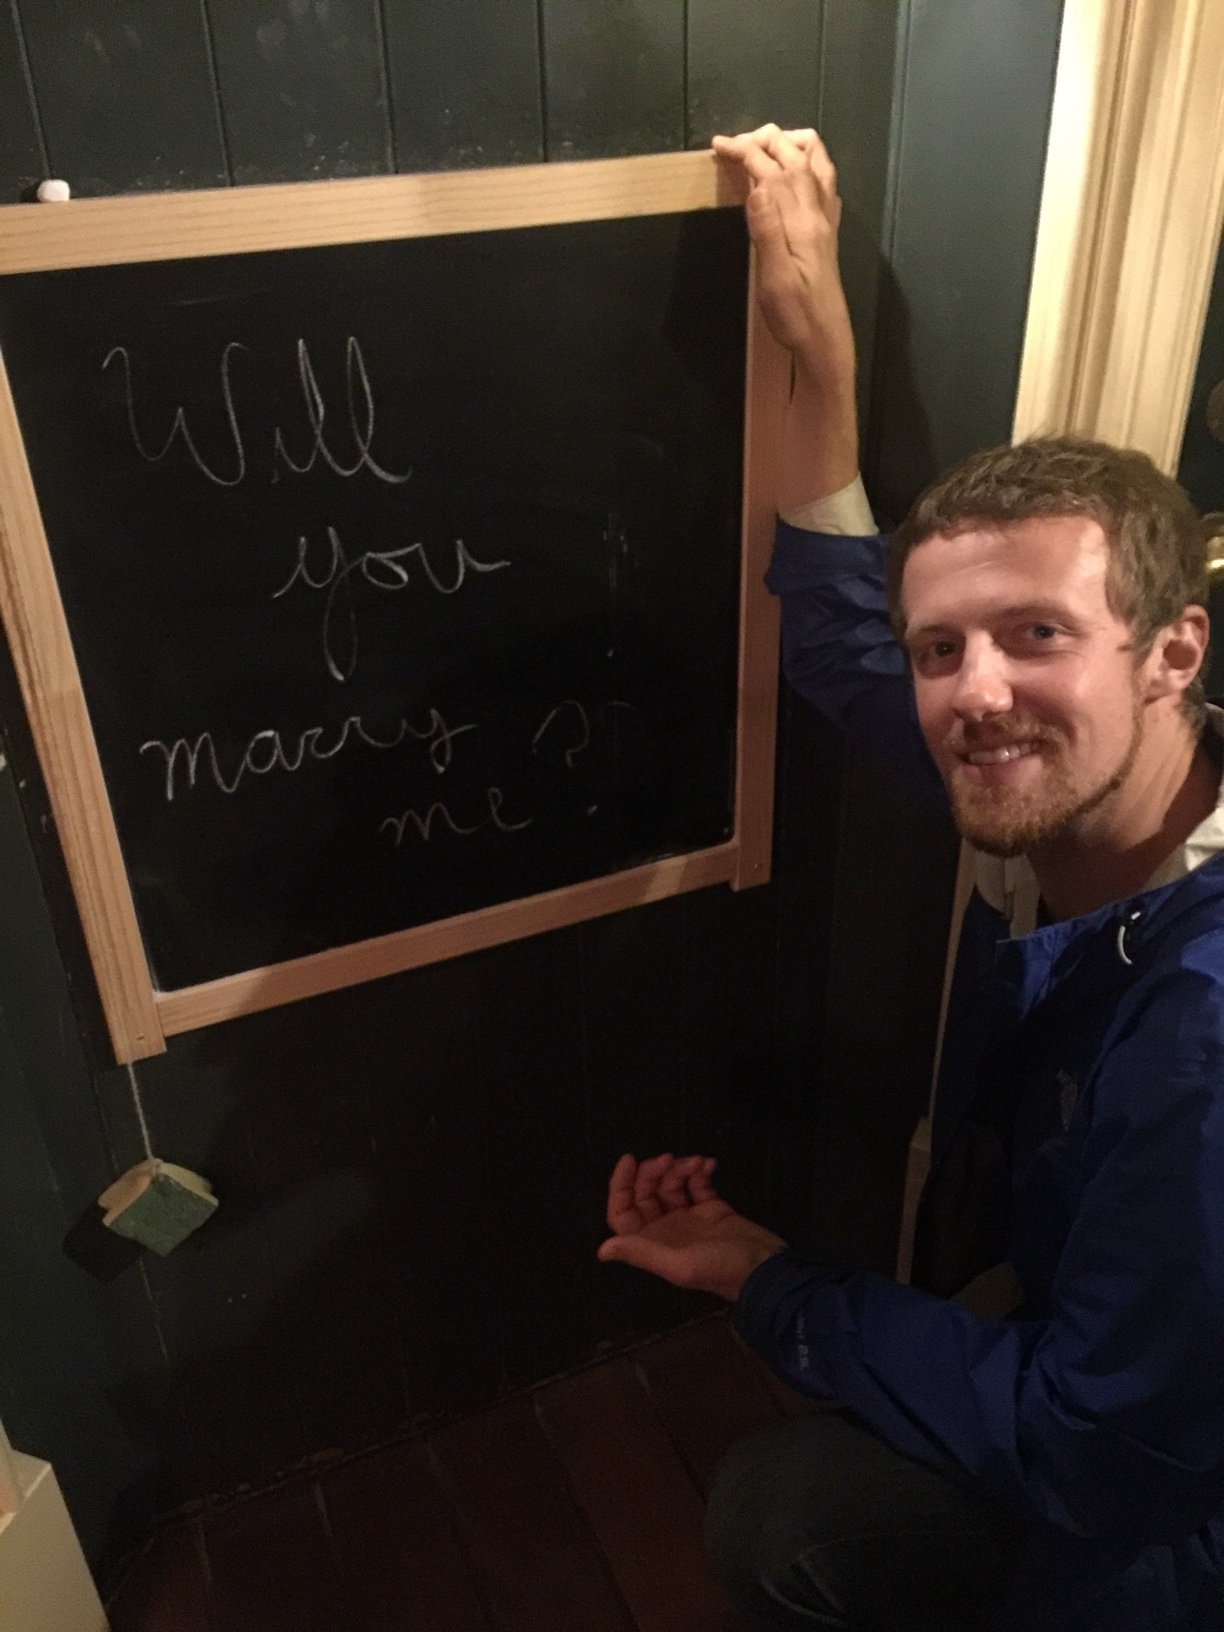 Will
you
marry
me?